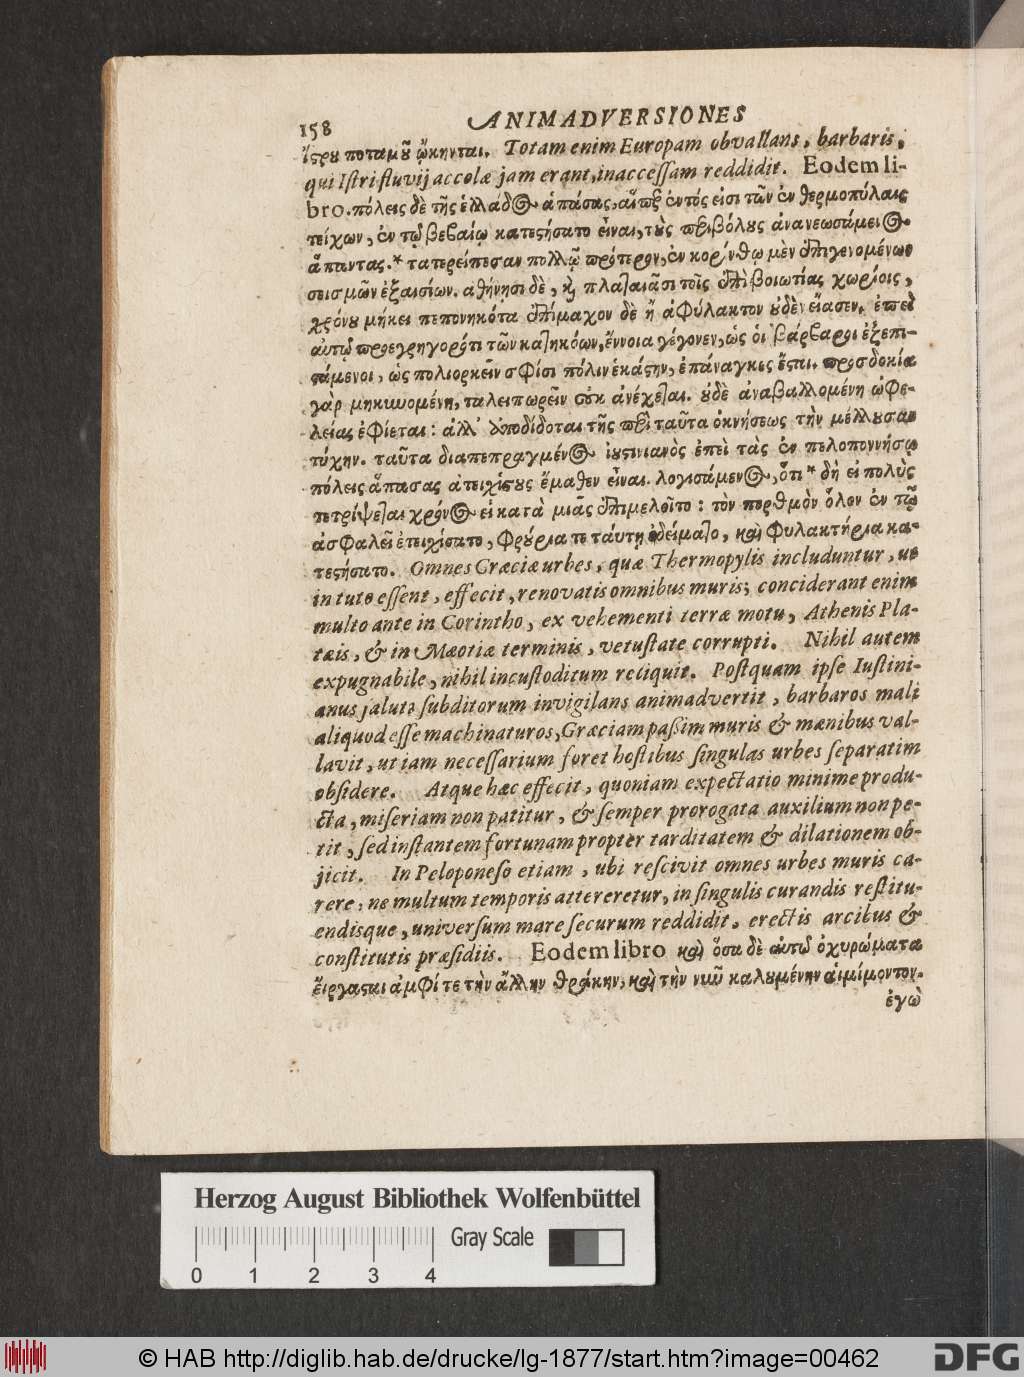 158 ANIMADVERSIONES
ἴςρȣ ποταμȣ͂ ᾤκηνται. Totam enim Europam obvallans, barbaris,
qui Istri fluvij accolæ jam erant, inaccessam reddidit. Eodem li-
bro. πόλεις δὲ τῆς ἑλλάδος ἁπάσας, αἵπερ ἐντός εἰσι τῶν ἐν θερμοπύλαις
τείχων, ἐν τῷ βεβαίῳ κατεςήσατο εἶναι, τȣ̀ς περιβόλȣς ἀνανεωσάμειος
ἅπαντας.* τατερείπεσαν πολλῷ πρότερον, ἐν κορίνθῳ μὲν ἐπιγενομένων
σεισμῶν ἐξαισίων. ἀθήνησι δὲ, κὶ πλαταιᾶσι τοῖς ἐπὶ βοιωτίας χωρίοις,
χρόνȣ μήκει πεπονηκότα ἐπίμαχον δὲ ἢ ἀφύλακτον ȣ̓δὲν εἴασεν. ἐπεὶ
αὐτῷ προεγρηγορότι τῶν κατηκόων, ἔννοια γέγονεν, ὡς οἱ βάρβαροι ἐξεπι-
ςάμενοι, ὡς πολιορκεῖν σφίσι πόλιν ἑκάςην, ἐπάναγκες ἔςαι. προσδοκία
γὰρ μηκυνομένη, ταλειπωρεῖν ȣ̓κ ἀνέχεται. ȣ̓δὲ ἀναβαλλομένη ὠφε-
λείας ἐφίεται: ἀλλ' ἀποδίδοται τῆς περὶ ταῦτα ὀκνήσεως τὴν μέλλȣσαν
τύχην. ταῦτα διαπεπραγμένος ἰȣςινιανὸς ἐπεὶ τὰς ἐν πελοποννήσῳ
πόλεις ἁπασας ἀτειχίςȣς ἔμαθεν εἶναι. λογισάμενος, ὅτι * δὴ εἰ πολὺς
τετρίψεται χρόνος εἰ κατὰ μιᾶς ἐπιμελοῖτο: τὸν πορθμὸν ὅλον ἐν τῷ
ἀσφαλεῖ ἐτειχίσατο, φρȣ́ρια τε τάυτῃ ἐδείματο, καὶ φυλακτήρια κα-
τεςήσατο. Omnes Græciæ urbes, quæ Thermopylis includuntur, ut
in tuto essent, effecit, renovatis omnibus muris; conciderant enim
multo ante in Corintho, ex vehementi terræ motu, Athenis Pla-
tæis, & in Mæotiæ terminis, vetustate corrupti. Nihil autem
expugnabile, nihil incustoditum reliquit. Postquam ipse Iustini-
anus saluti subditorum invigilans animadvertit, barbaros mali
aliquod esse machinaturos, Græciam passim muris & mœnibus val-
lavit, ut iam necessarium foret hostibus singulas urbes separatim
obsidere. Atque hæc effecit, quoniam expectatio minime produ-
cta, miseriam non patitur, & semper prorogata auxilium non pe-
tit, sed instantem fortunam propter tarditatem & dilationem ob-
jicit. In Peloponeso etiam, ubi rescivit omnes urbes muris ca-
rere, ne multum temporis attereretur, in singulis curandis restitu-
endisque, universum mare securum reddidit, erectis arcibus &
constitutis præsidiis. Eodem libro καὶ ὅσα δὲ αὐτῷ ὀχυρώματα
ἔιργασαι ἀμφί τε τὴν ἄλλην θράκην, καὶ τὴν νῦν καλȣμένην αἱμίμοντον.
ἐγὼ
Herzog August Bibliothek Wolfenbüttel
Gray Scale
0 1 2 3 4
© HAB http://diglib.hab.de/drucke/lg-1877/start.htm?image=00462
DFG